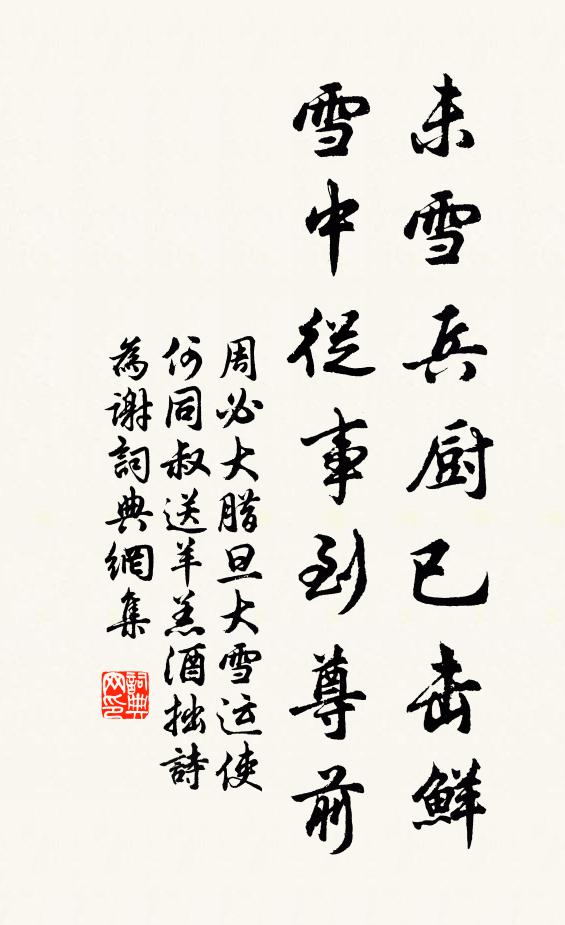 未雪兵厨已击鮮
雪中從事到尊前
周必大腊旦大雪运使
何同叔送羊羔酒拙詩
為谢詞典網集
詞典网印